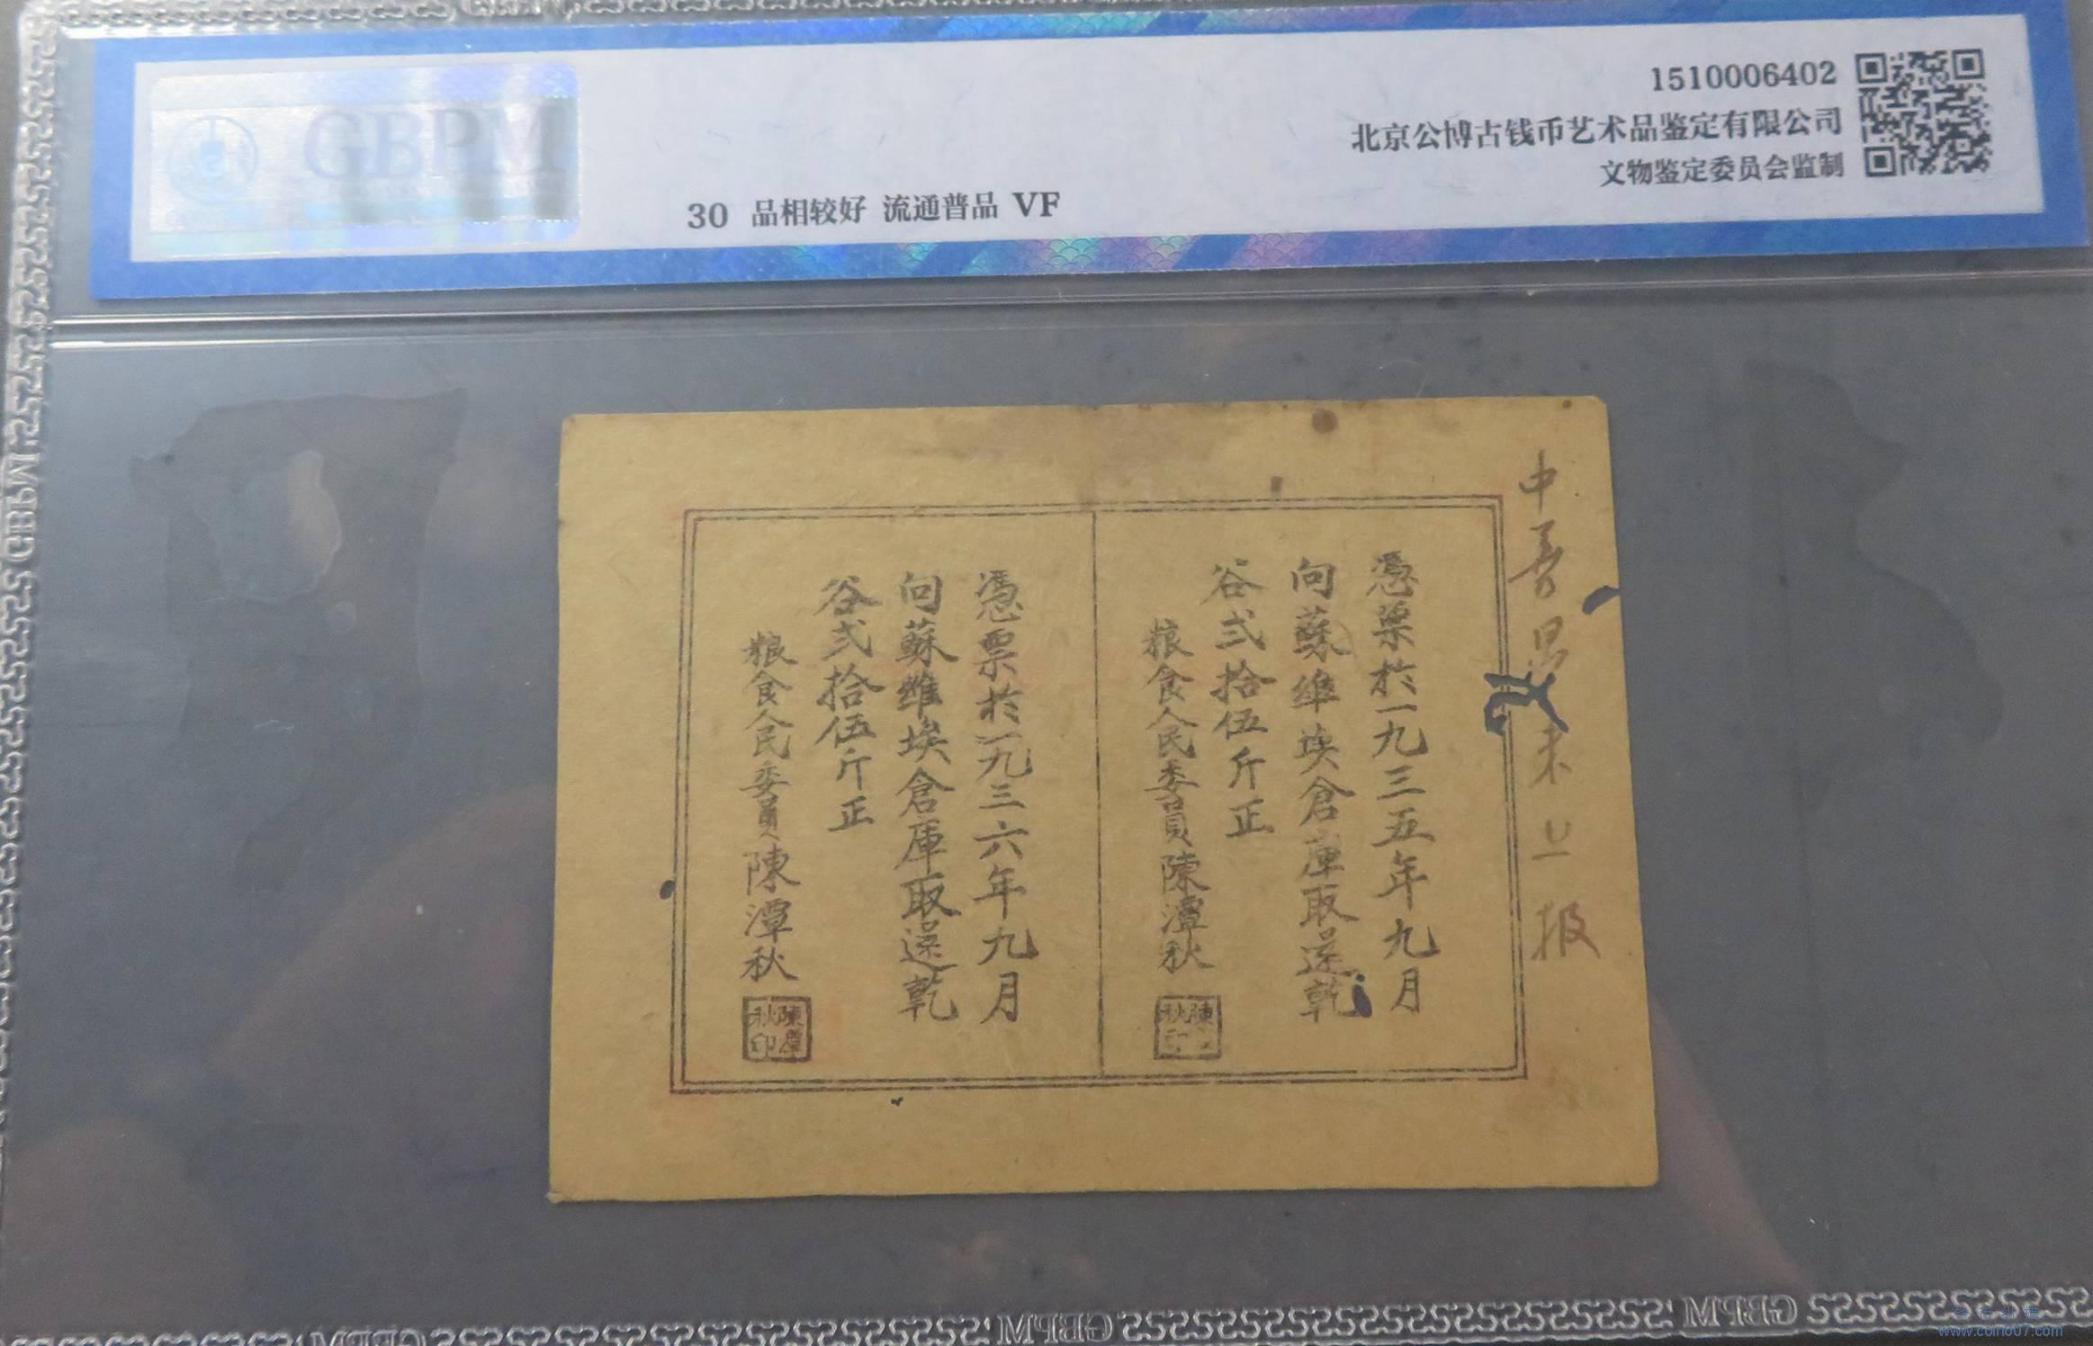 GBPM
1510006402
北京公博古钱币艺术品鉴定有限公司
文物鉴定委员会监制
30 品相较好 流通普品 VF
憑票於一九三五年九月
向蘇維埃倉庫取還乾
谷弍拾伍斤正
粮食人民委員陳潭秋
憑票於一九三六年九月
向蘇維埃倉庫取還乾
谷弍拾伍斤正
粮食人民委員陳潭秋
陳潭秋印
GBPM
GBPM
GBPM
GBPM
www.coin007.com